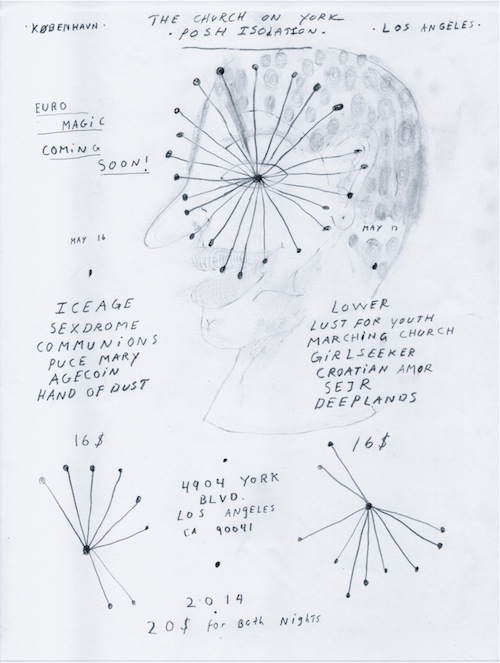 THE CHURCH ON YORK
· KØBENHAVN ·
· POSH ISOLATION .
· LOS ANGELES ·
EURO
MAGIC
COMING
SOON!
MAY 16
MAY 17
ICEAGE
SEXDROME
COMMUNIONS
PUCE MARY
AGECOIN
HAND OF DUST
LOWER
LUST FOR YOUTH
MARCHING CHURCH
GIRLSEEKER
CROATIAN AMOR
SEJR
DEEPLANDS
16$
16$
4904 YORK
BLVD.
LOS ANGELES
CA 90041
2014
20$ for Both Nights